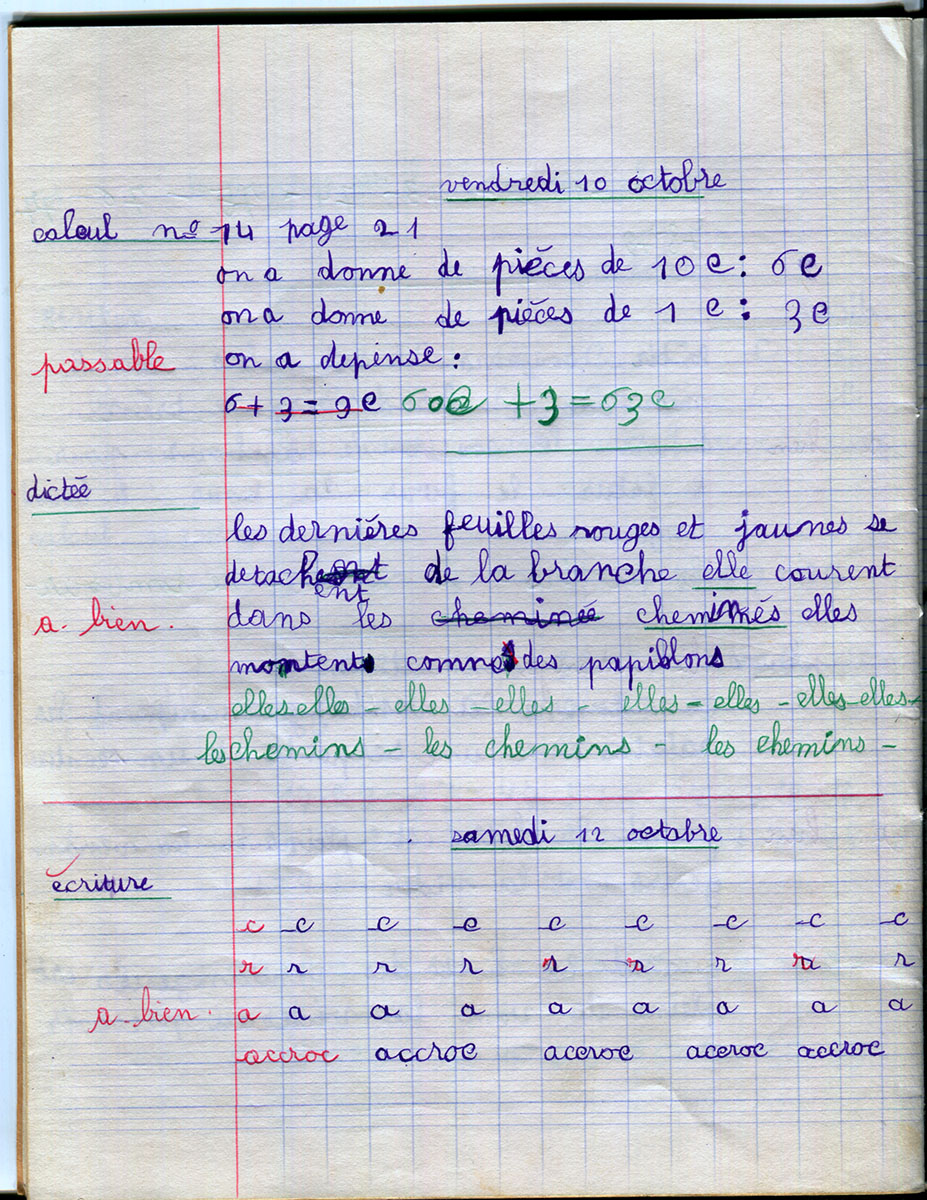 vendredi 10 octobre
calcul nº 14 page 21
on a donne de pièces de 10 c : 6c
on a donne de pièces de 1 c : 3c
passable on a depense :
6 + 3 = 9c 60c + 3 = 63c
dictée
les derniéres feuilles rouges et jaunes se
detachent de la branche elle courent
ent
a. bien. dans les cheminée cheminés elles
montent comme des papillons
elles elles - elles - elles - elles - elles - elles - elles -
les chemins - les chemins - les chemins -
samedi 12 octobre
écriture
c c c c c c c c c
r r r r r r r r r
a. bien. a a a a a a a a a
accroc accroc accroc accroc accroc